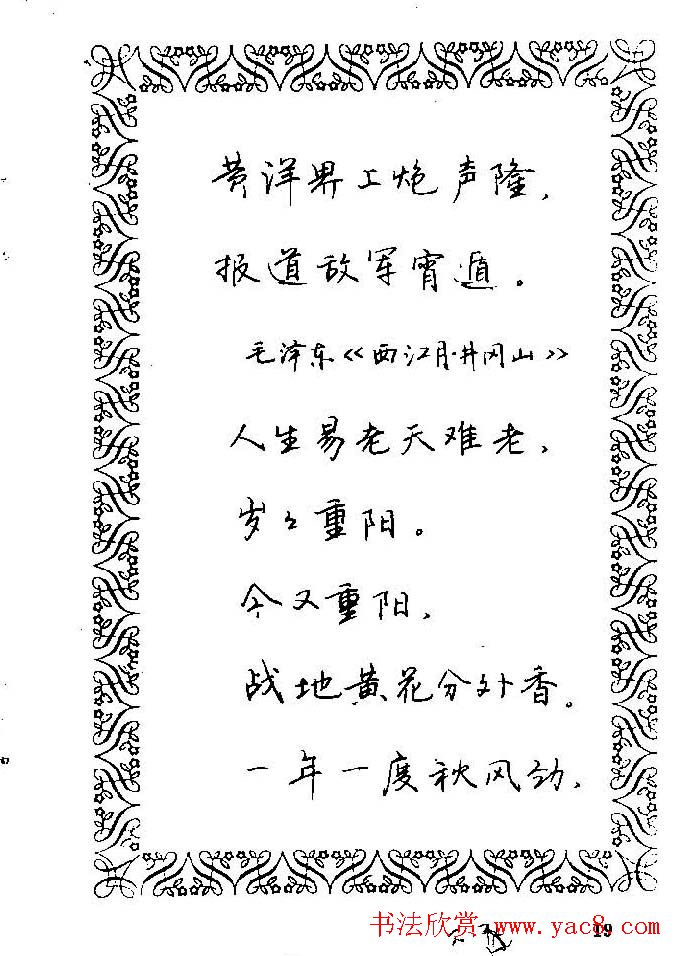 黄洋界上炮声隆，
报道敌军宵遁。
毛泽东《西江月·井冈山》
人生易老天难老，
岁々重阳。
今又重阳，
战地黄花分外香。
一年一度秋风劲，
书法欣赏·www.yac8.com
19